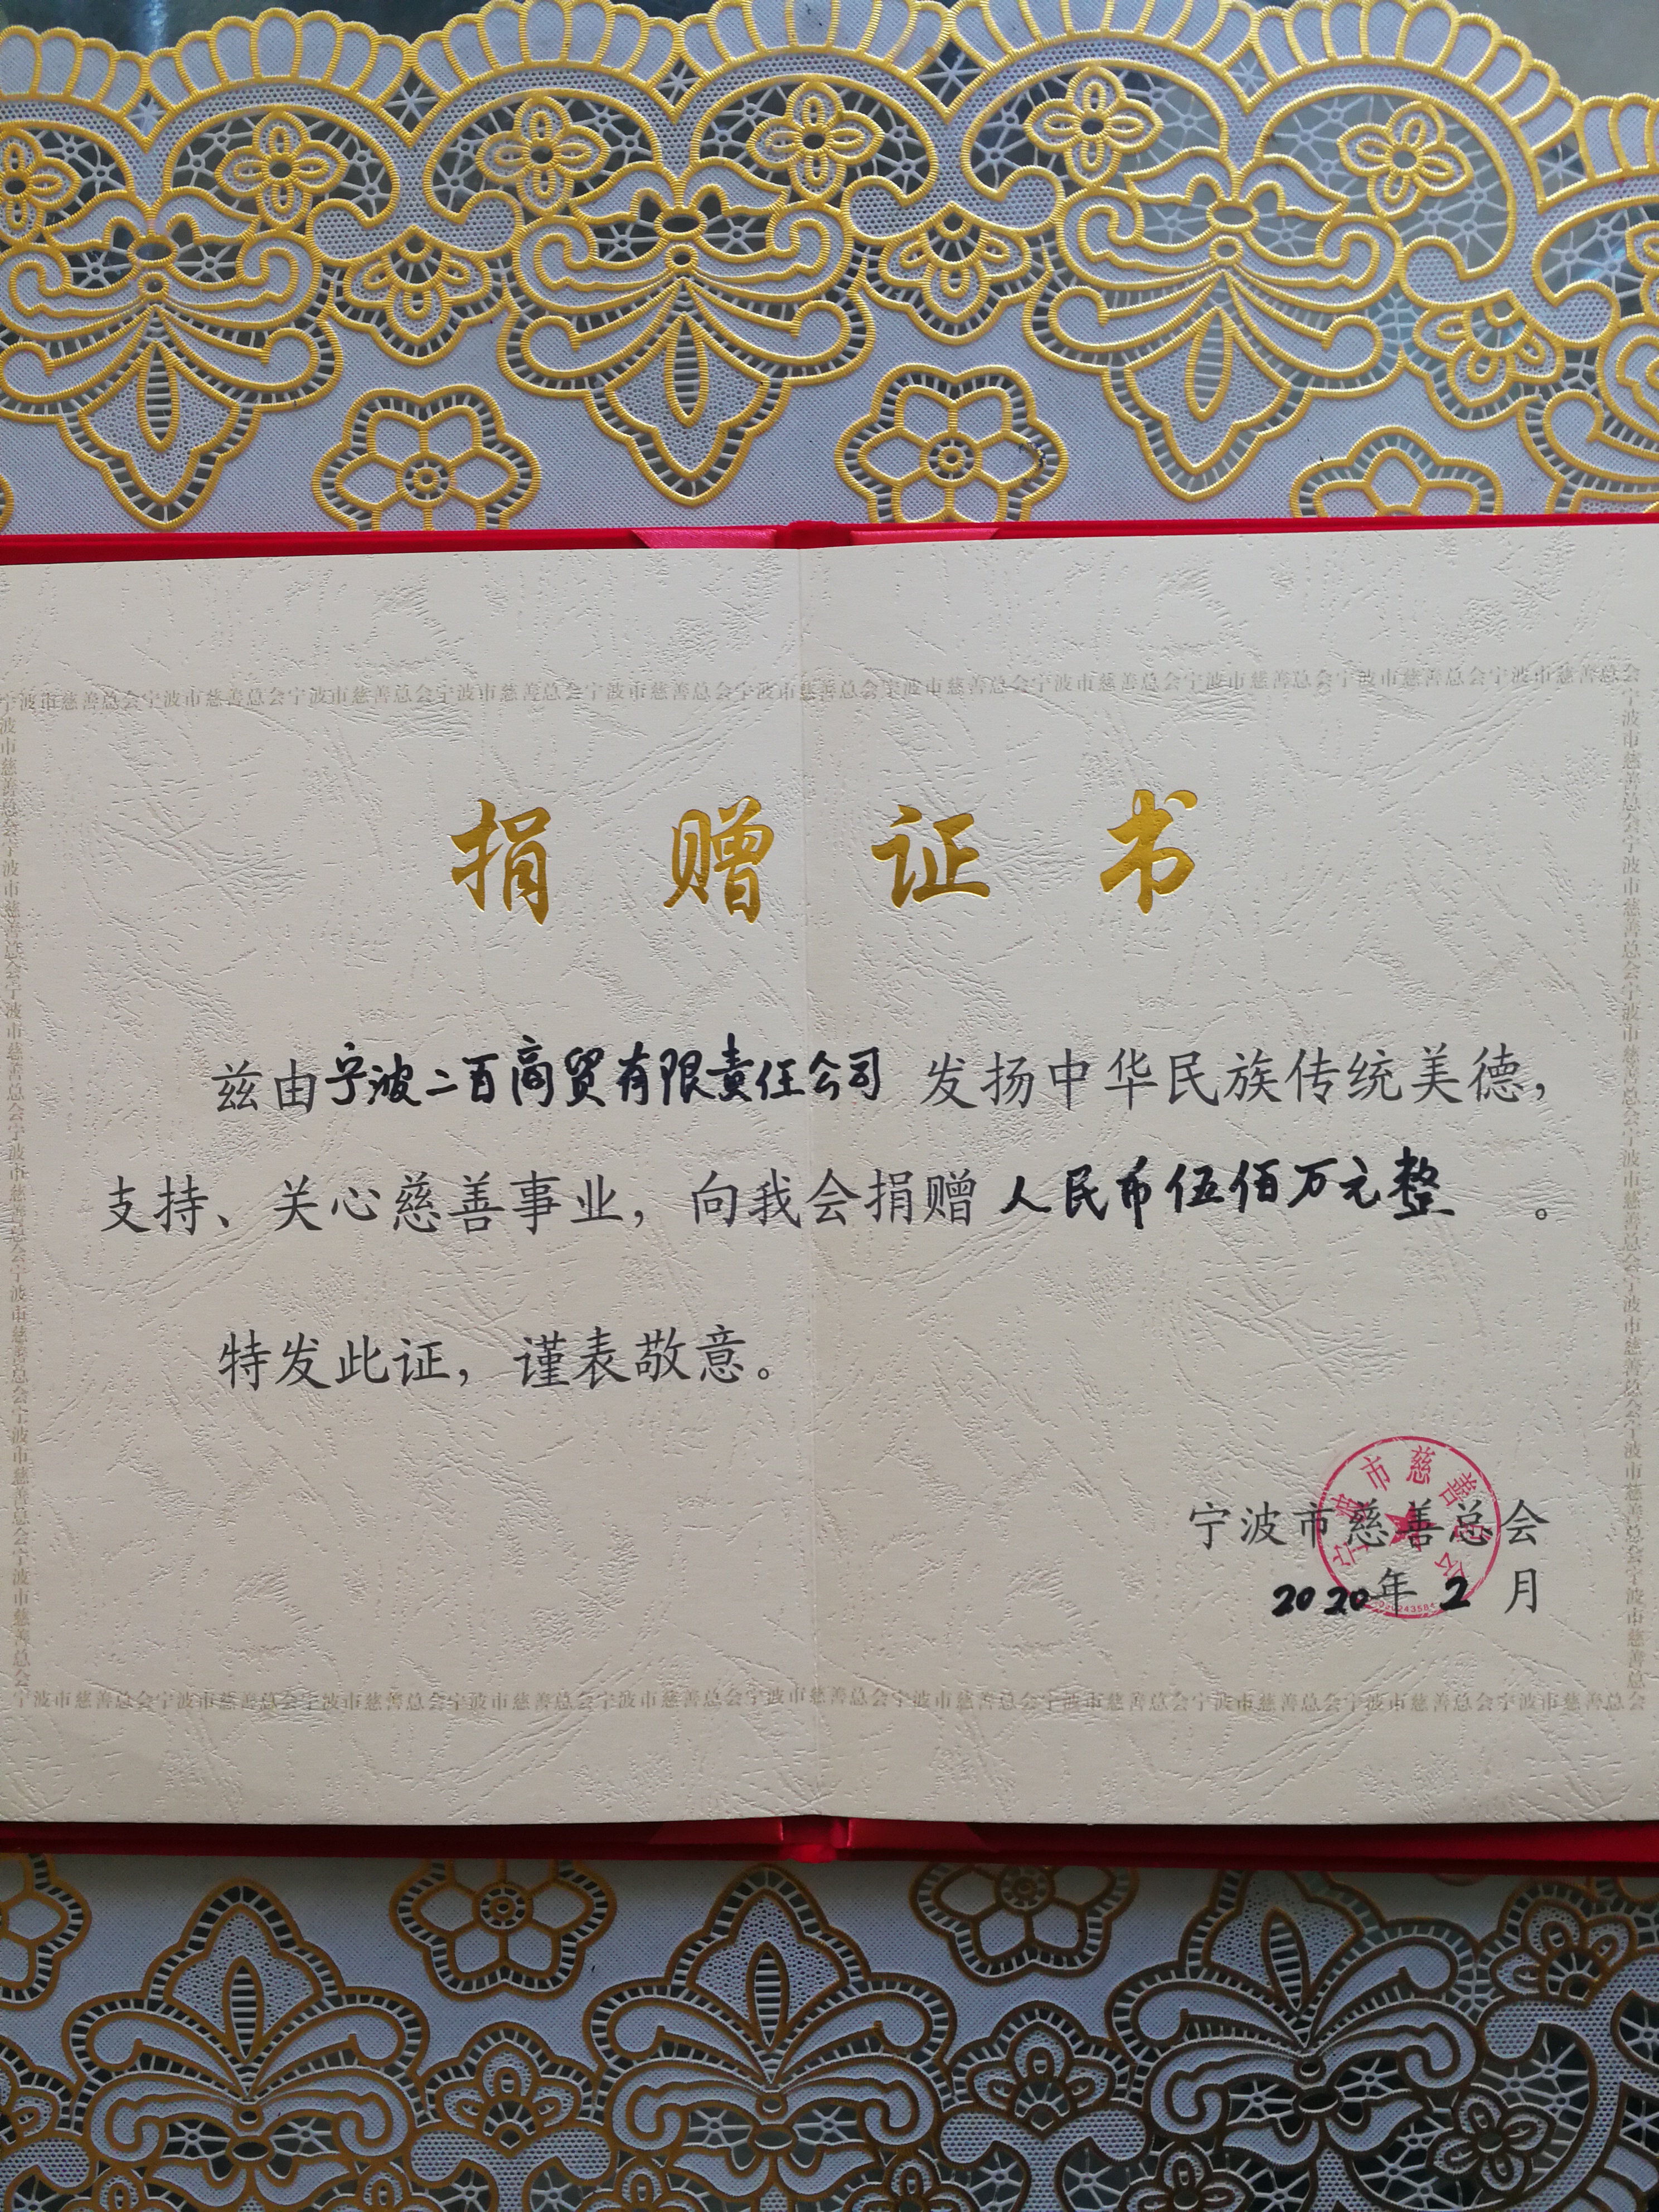 宁波市慈善总会宁波市慈善总会宁波市慈善总会宁波市慈善总会宁波市慈善总会宁波市慈善总会宁波市慈善总会宁波市慈善总会宁波市慈善总会宁波市慈善总会宁波市慈善总会
捐赠证书
兹由宁波二百商贸有限责任公司 发扬中华民族传统美德，
支持、关心慈善事业，向我会捐赠 人民币伍佰万元整 。
特发此证，谨表敬意。
宁波市慈善总会
宁波市慈善总会
2020年 2 月
宁波市慈善总会宁波市慈善总会宁波市慈善总会宁波市慈善总会宁波市慈善总会宁波市慈善总会宁波市慈善总会宁波市慈善总会宁波市慈善总会宁波市慈善总会宁波市慈善总会